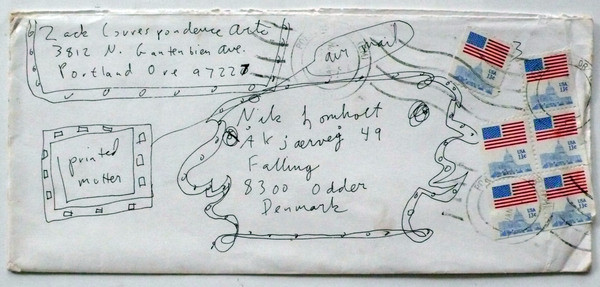 Zack Correspondence Arts
3812 N. Gantenbien Ave.
Portland Ore 97227
air mail
3
Nils Lomholt
Åkjærvej 49
Falling
8300 Odder
Denmark
printed
matter
USA 13c
USA 13c
USA 13c
USA 13c
USA 13c
USA 13c